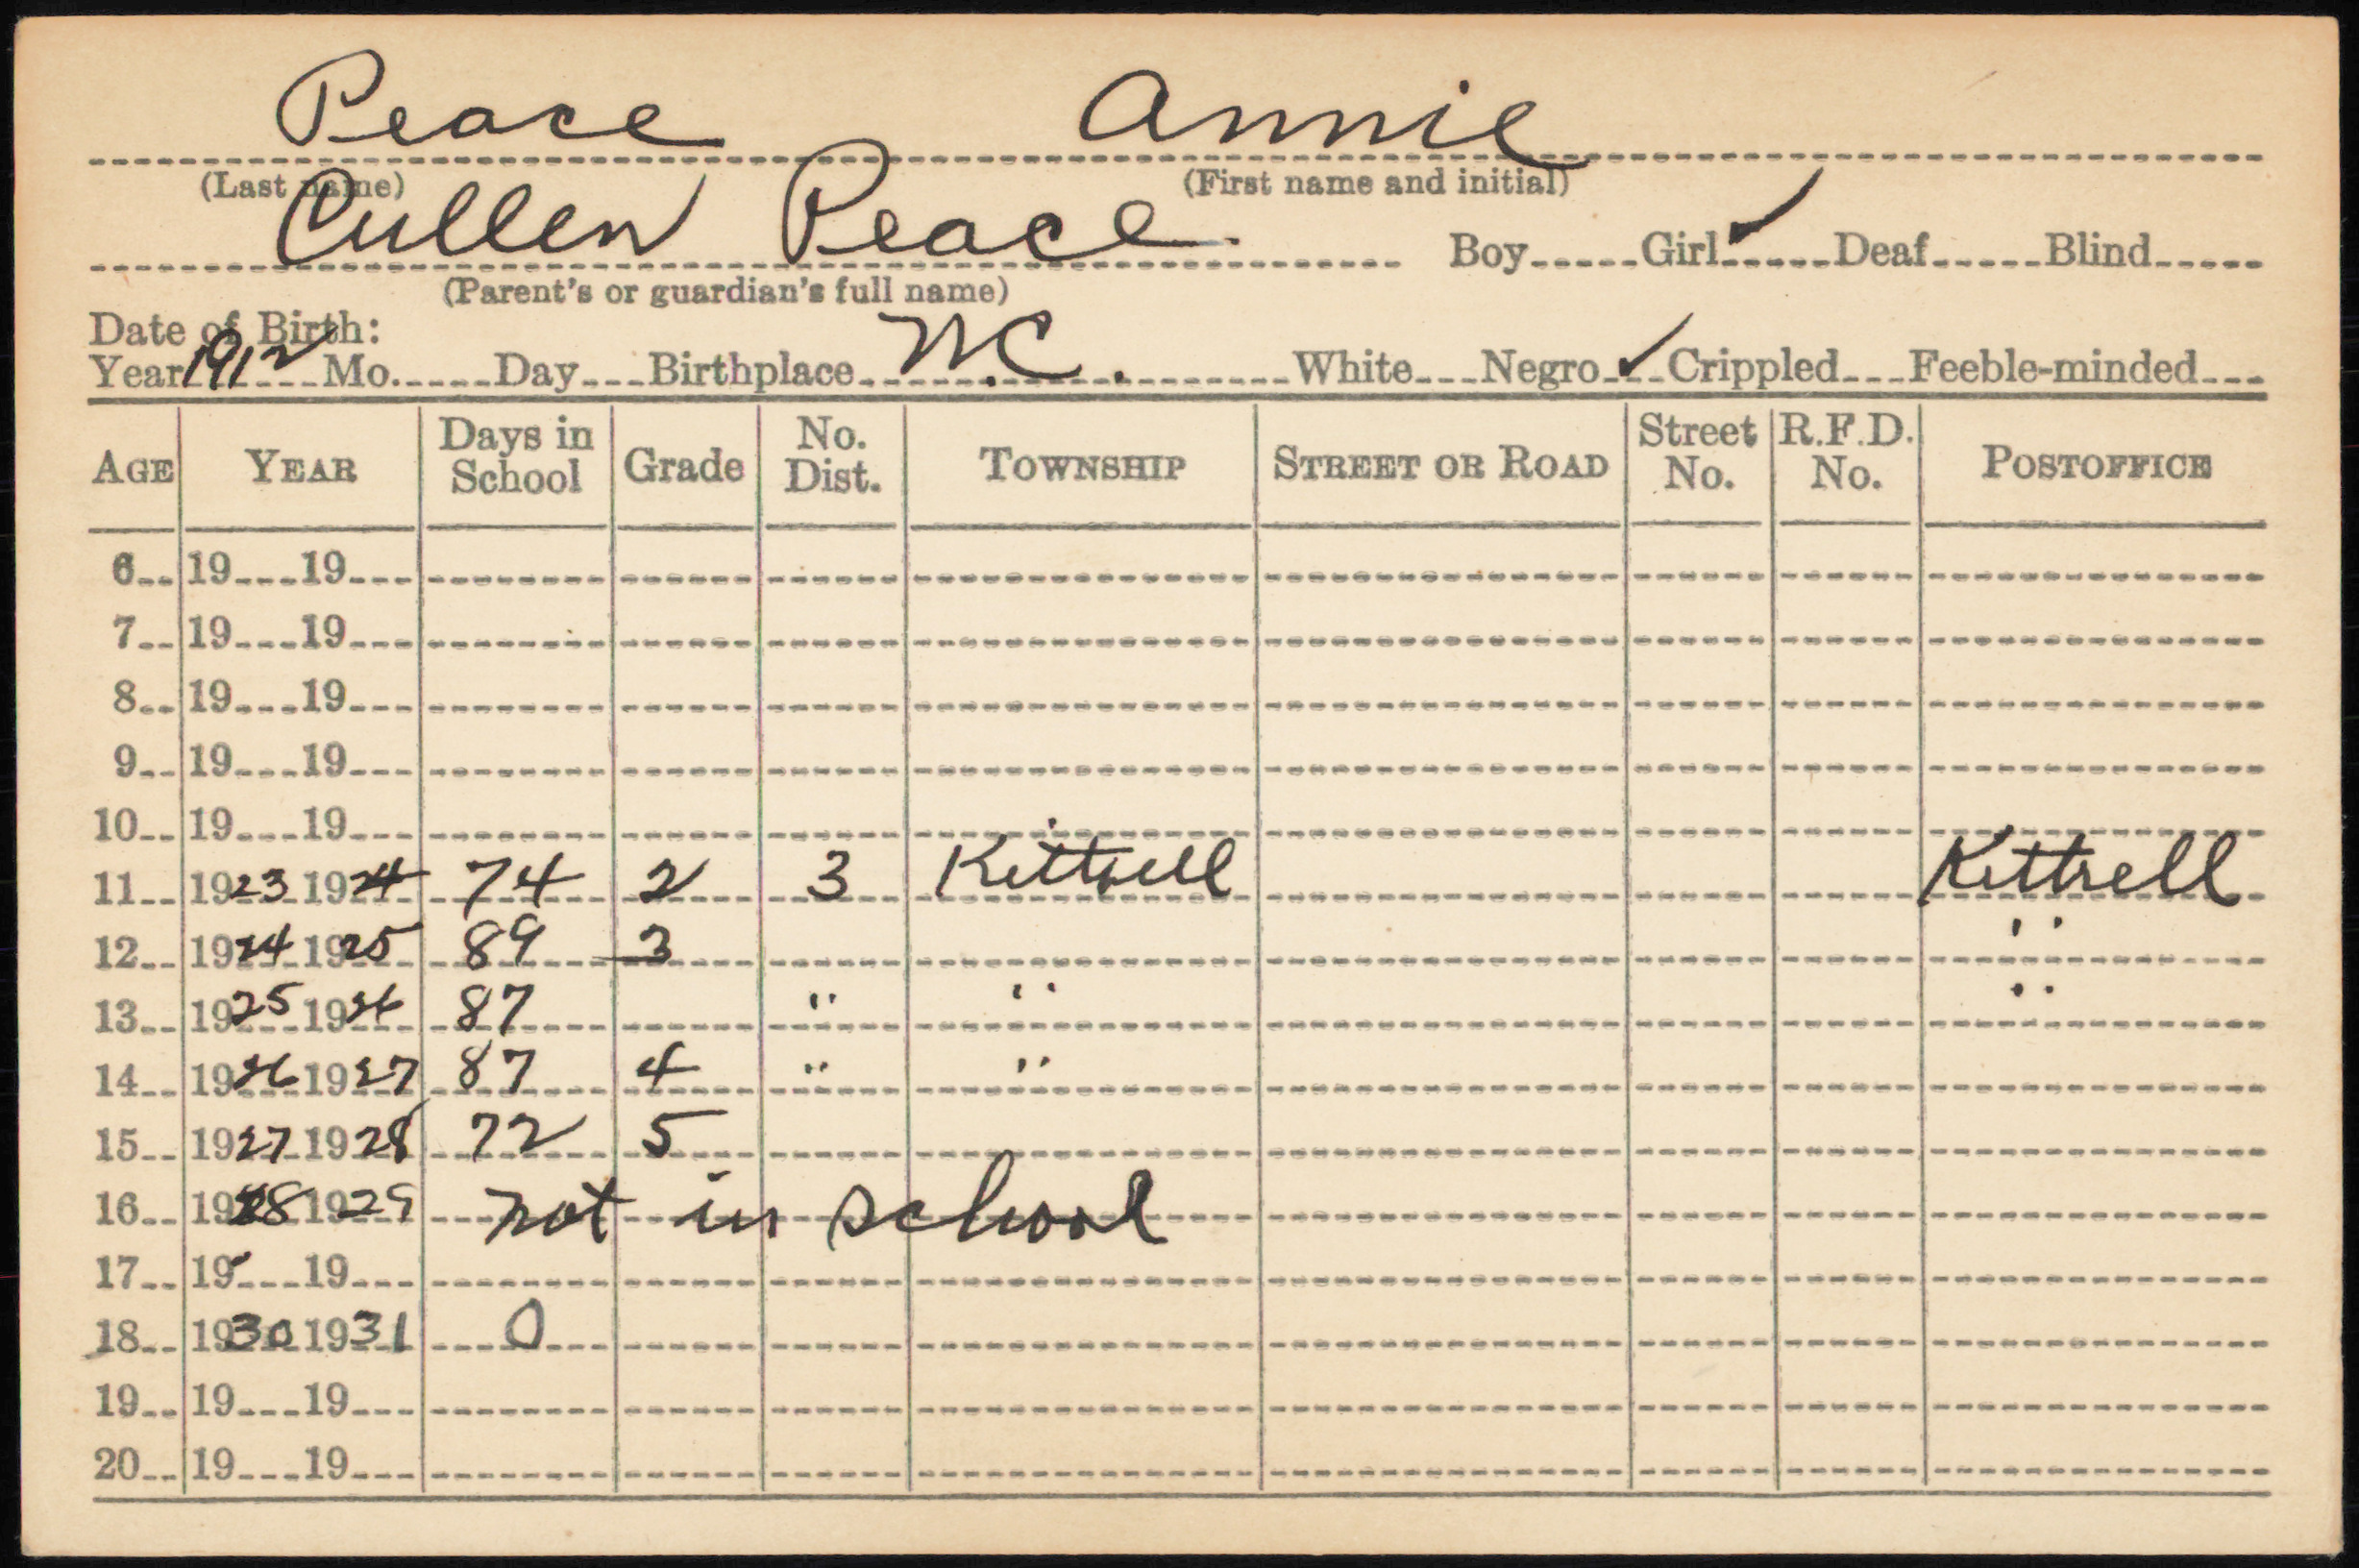 Peace Annie
(Last name) (First name and initial)
Cullen Peace. Boy Girl ✓ Deaf Blind
(Parent's or guardian's full name)
Date of Birth:
Year 1912 Mo. Day Birthplace N.C. White Negro ✓ Crippled Feeble-minded
AGE YEAR Days in School Grade No. Dist. TOWNSHIP STREET OR ROAD Street No. R.F.D. No. POSTOFFICE
6 19 19
7 19 19
8 19 19
9 19 19
10 19 19
11 1923 1924 74 2 3 Kittrell Kittrell
12 1924 1925 89 3 "
13 1925 1926 87 " " "
14 1926 1927 87 4 " "
15 1927 1928 72 5
16 1928 1929 not in school
17 19 19
18 1930 1931 0
19 19 19
20 19 19